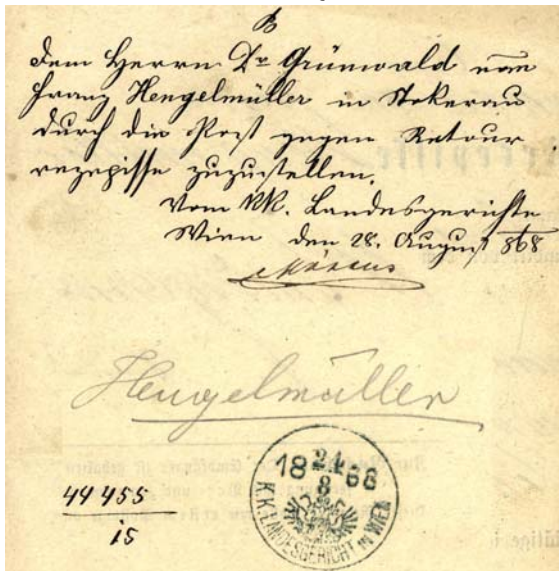 B
dem Herrn Dr Grünwald nõe
Franz Hengelmüller in Stokerau
durch die Post gegen Retour
rezepisse zuzustellen.
Vom KK. Landesgerichte
Wien den 28. August 868
Hengelmüller
18 68
8
K.K. LANDESGERICHT IN WIEN
44 455
15